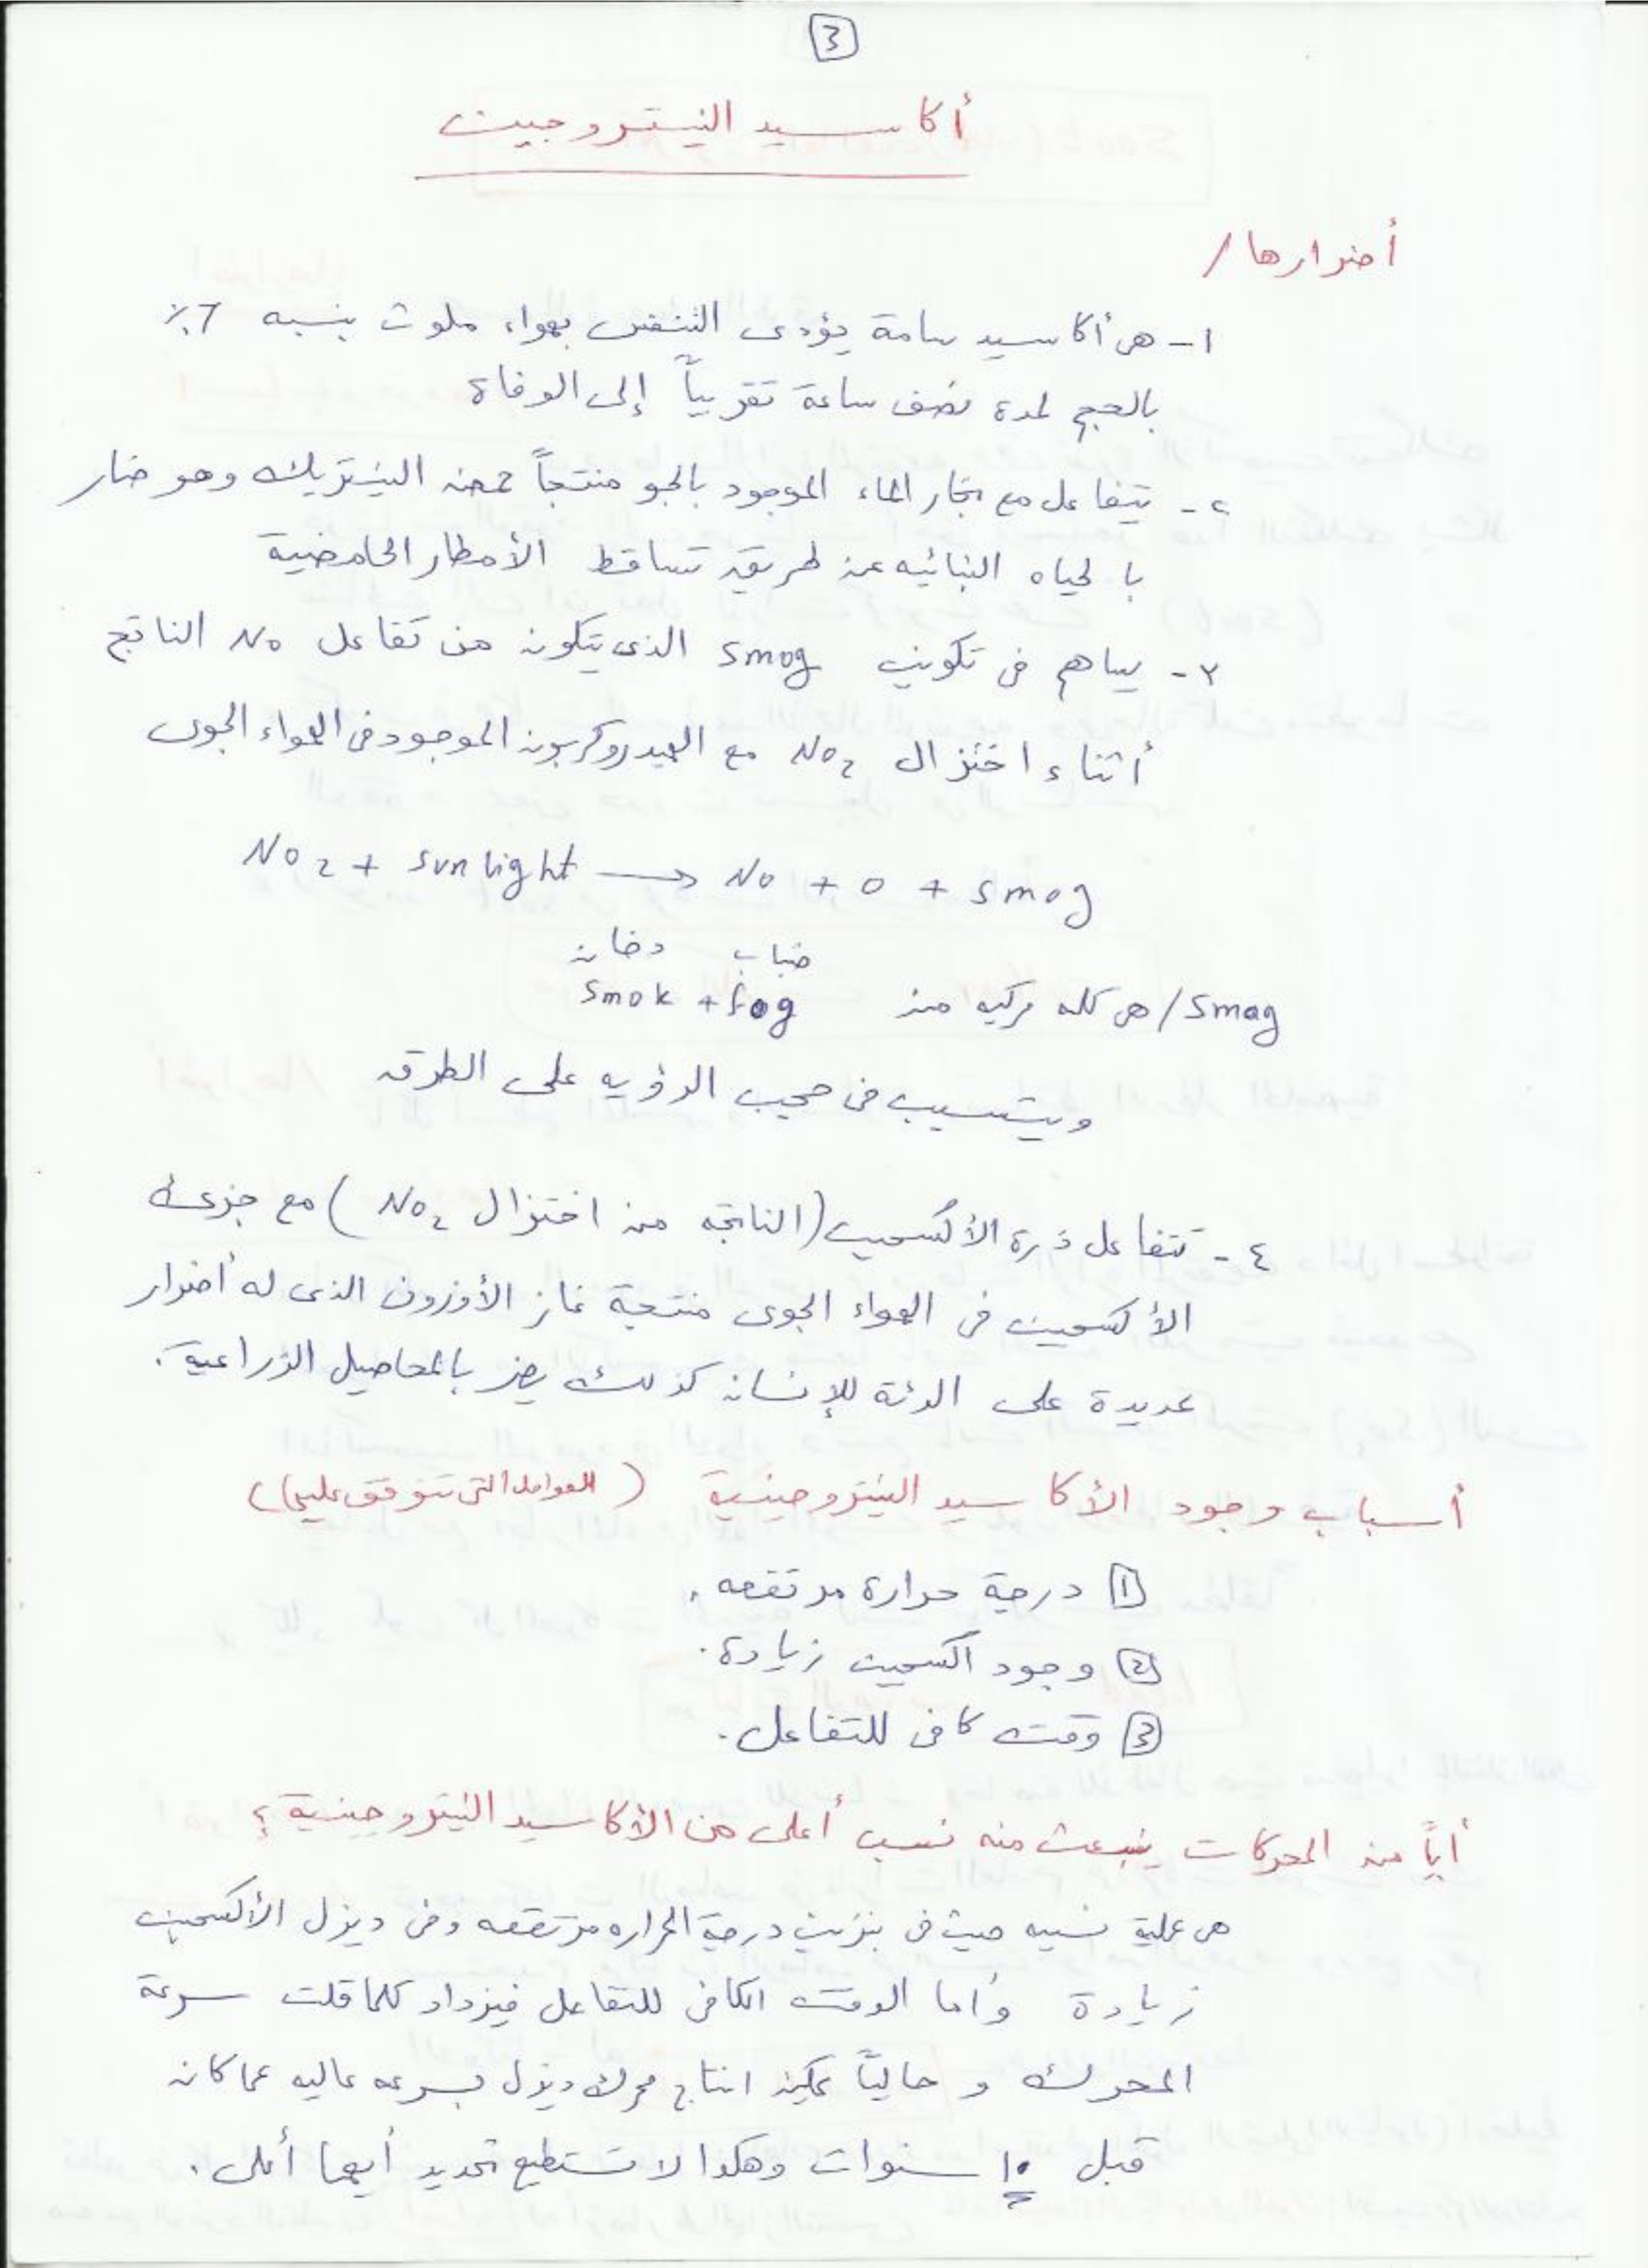 3
أكاسيد النيتروجين
أضرارها /
١- هى أكاسيد سامة يؤدى التنفس بهواء ملوث بنسبه 7٪
بالحجم لمدة نصف ساعة تقريباً إلى الوفاة
٢- يتفاعل مع بخار الماء الموجود بالجو منتجاً حمض النيتريك وهو ضار
بالحياه النباتيه عن طريق تساقط الأمطار الحامضية
٣- يساهم فى تكوين smog الذى يتكون من تفاعل NO الناتج
أثناء اختزال NO2 مع الهيدروكربون الموجود فى الهواء الجوى
NO2 + sun light → NO + O + smog
ضباب دخان
smag / هى كلمه مركبه من smok + fog
ويتسبب فى حجب الرؤيه على الطرق
٤- تتفاعل ذرة الأكسجين (الناتجه من اختزال NO2) مع جزئ
الأكسجين فى الهواء الجوى منتجة غاز الأوزون الذى له أضرار
عديدة على الرئة للإنسان كذلك يضر بالمحاصيل الزراعية.
أسباب وجود الأكاسيد النيتروجينية (العوامل التى تتوقف عليها)
1 درجة حرارة مرتفعه.
2 وجود اكسجين زيادة.
3 وقت كافى للتفاعل.
أياً من المحركات ينبعث منه نسب أعلى من الأكاسيد النيتروجينية؟
هى عملية نسبيه حيث فى بنزين درجة الحراره مرتفعه وفى ديزل الأكسجين
زيادة وأما الوقت الكافى للتفاعل فيزداد كلما قلت سرعة
المحرك و حالياً يمكن انتاج محرك ديزل بسرعه عاليه عما كان
قبل 10 سنوات وهكذا لا تستطيع تحديد أيهما أعلى.